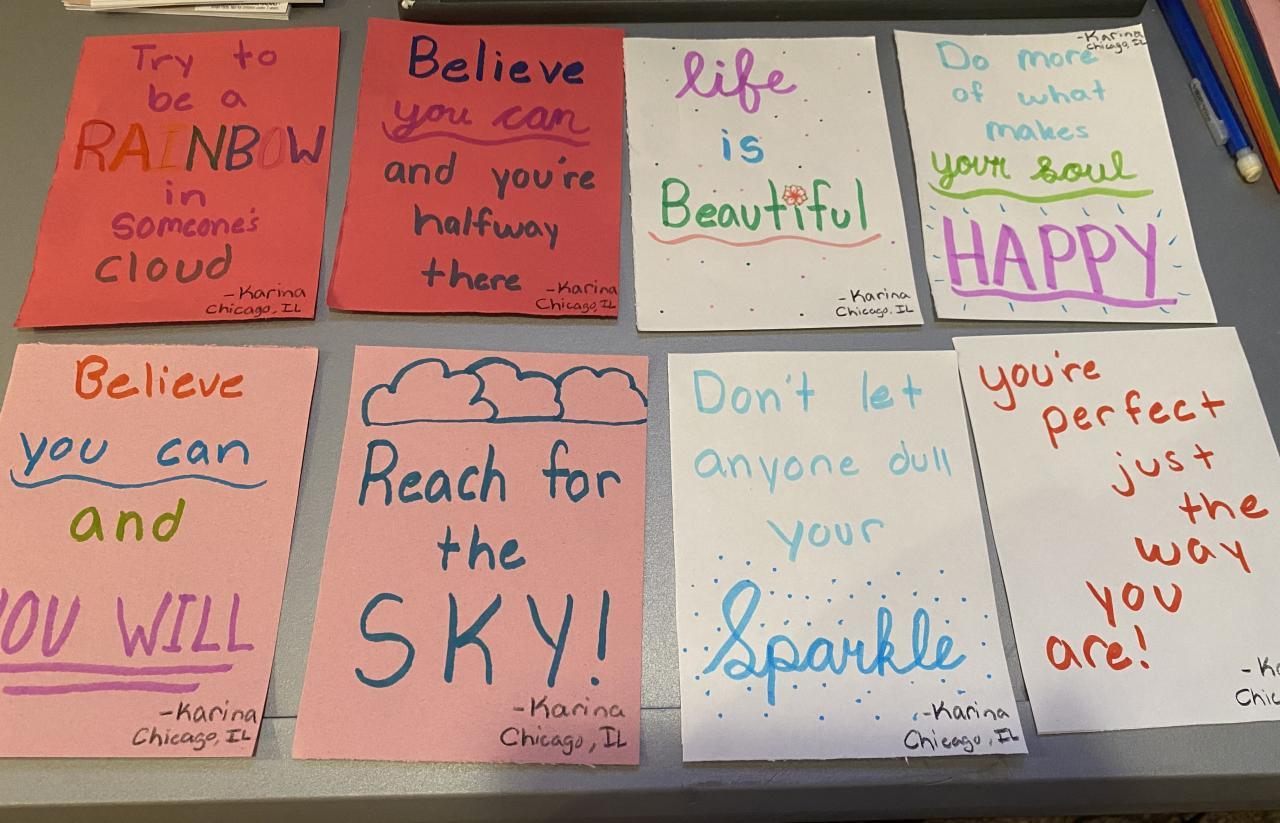 Try to
be a
RAINBOW
in
someone's
cloud
-Karina
Chicago, IL
Believe
you can
and you're
halfway
there
-Karina
Chicago, IL
life
is
Beautiful
-Karina
Chicago, IL
-Karina
Chicago, IL
Do more
of what
makes
your soul
HAPPY
Believe
you can
and
YOU WILL
-Karina
Chicago, IL
Reach for
the
SKY!
-Karina
Chicago, IL
Don't let
anyone dull
your
Sparkle
-Karina
Chicago, IL
you're
perfect
just
the
way
you
are!
-Ka
Chic